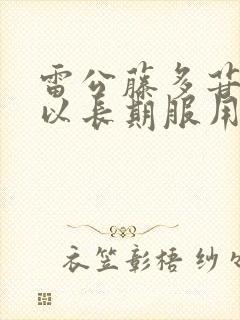 雷公藤多苷
以长期服用
衣笠彰梧 纱